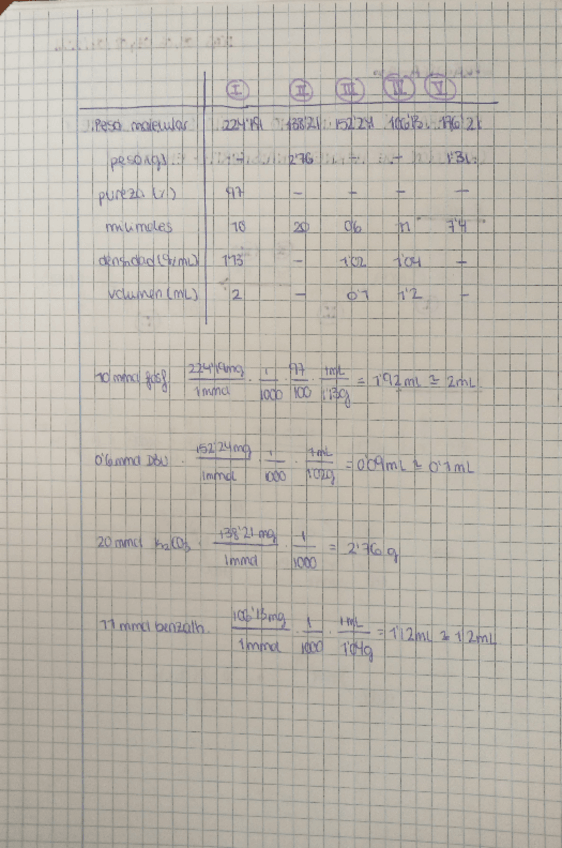 I II III IV V
Peso molecular 224'19 138'21 152'24 106'13 176'21
peso(g) - 2'76 - - 1'31
pureza (%) 97 - - - -
mmoles 10 20 0'6 11 7'4
densidad (g/mL) 1'13 - 1'02 1'04 -
volumen (mL) 2 - 0'1 1'2 -
10 mmol fosf 224'19mg/1mmol · 1/1000 · 97/100 · 1mL/1'13g = 1'92mL ≃ 2mL
0'6 mmol DBU · 152'24mg/1mmol · 1/1000 · 1mL/1'02g = 0'09mL ≃ 0'1mL
20 mmol K₂CO₃ · 138'21mg/1mmol · 1/1000 = 2'76 g
11 mmol benzalh. 106'13mg/1mmol · 1/1000 · 1mL/1'04g = 1'12mL ≃ 1'2mL